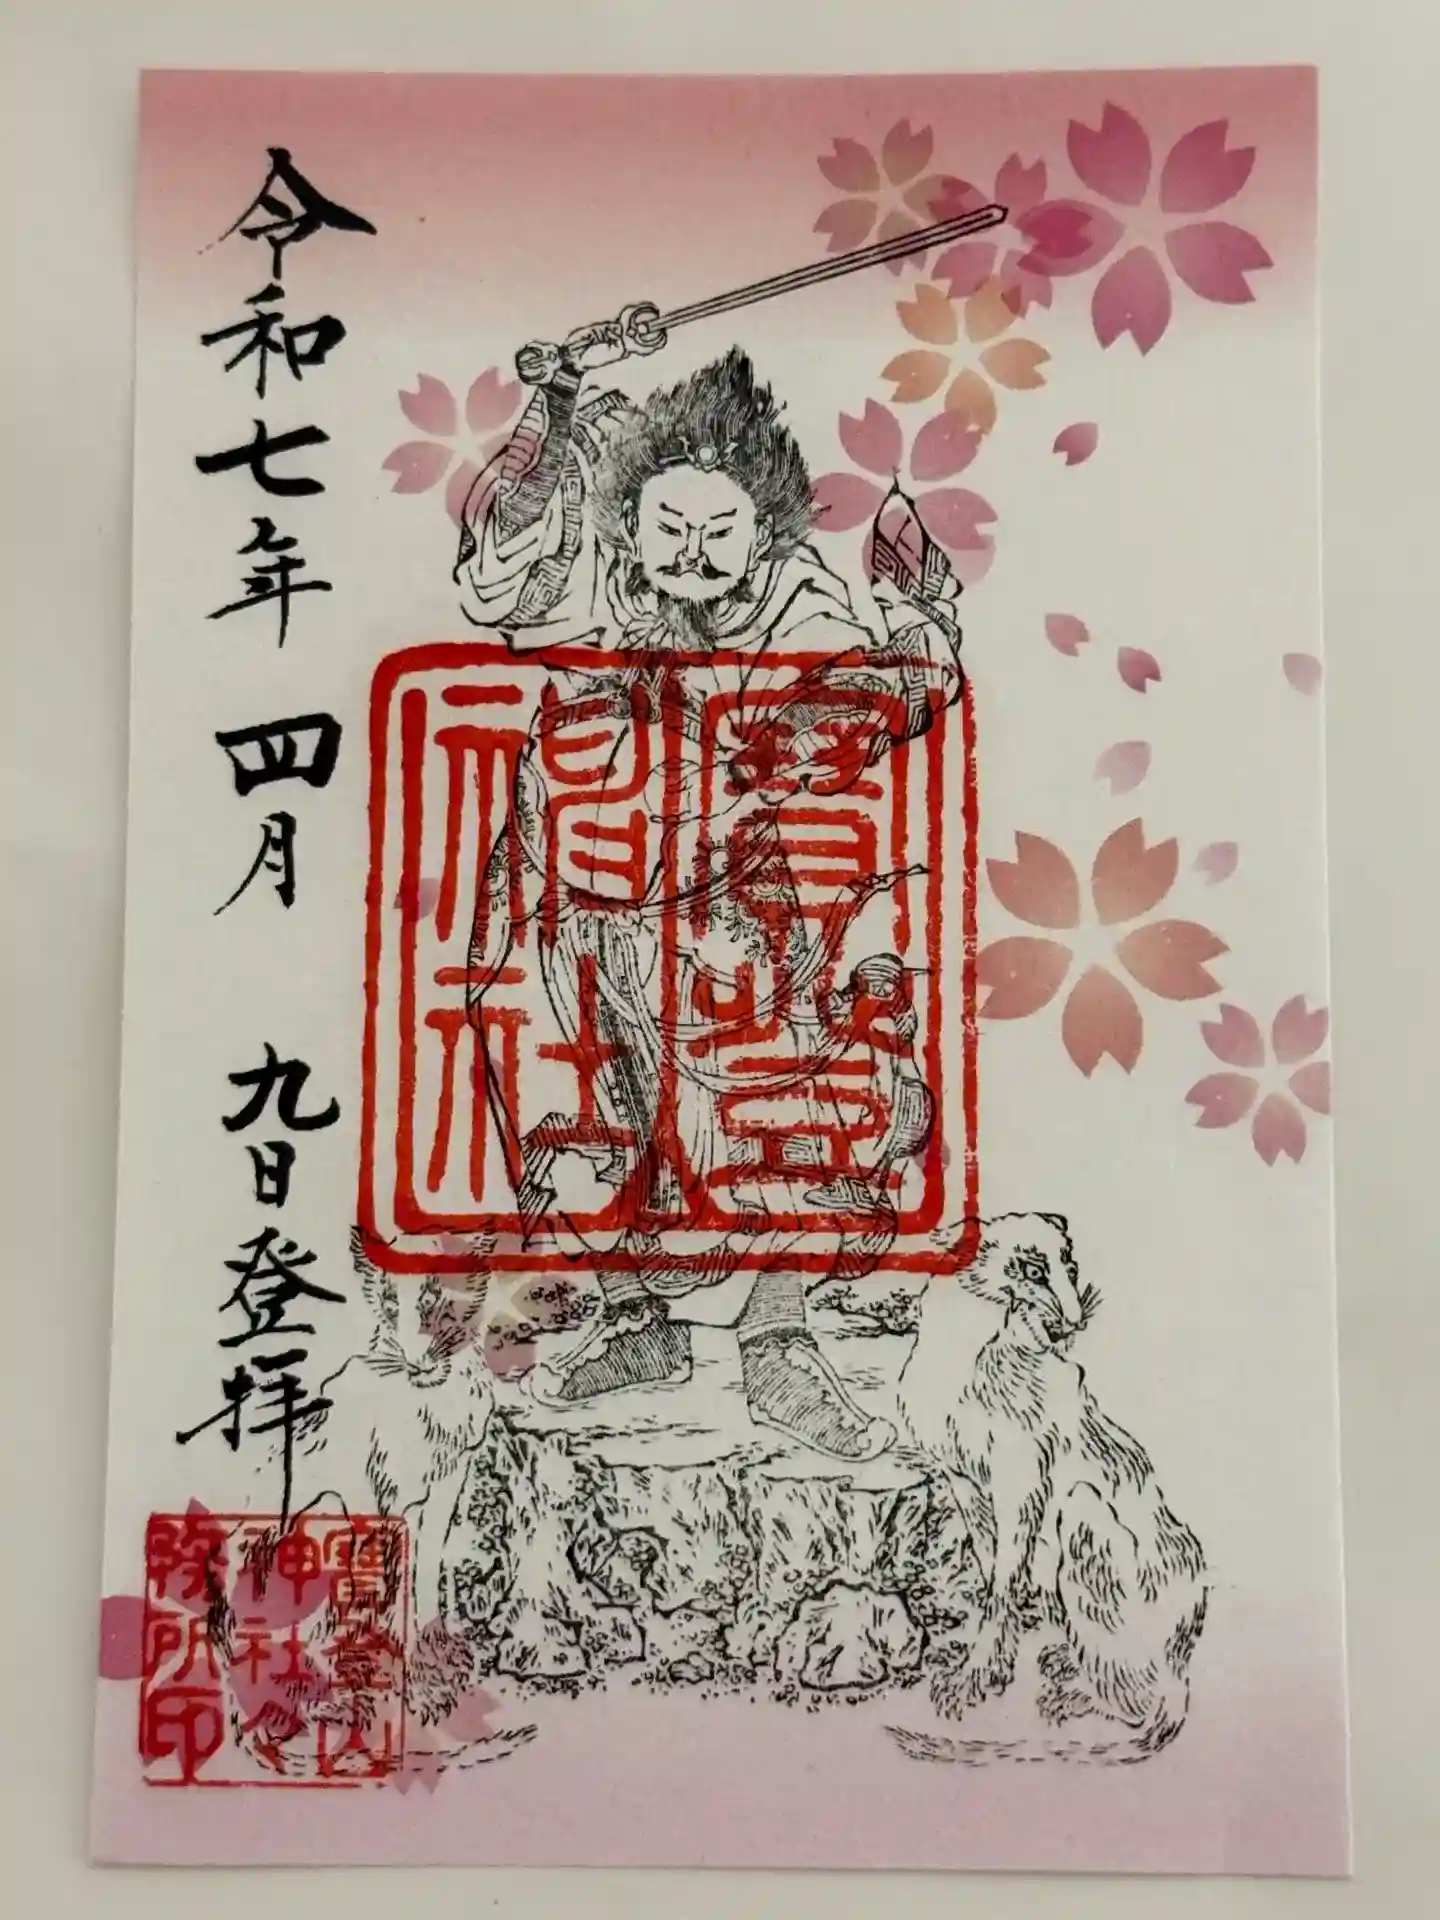 寶登
神社
令和七年四月九日登拝
寶登山
神社々
務所印